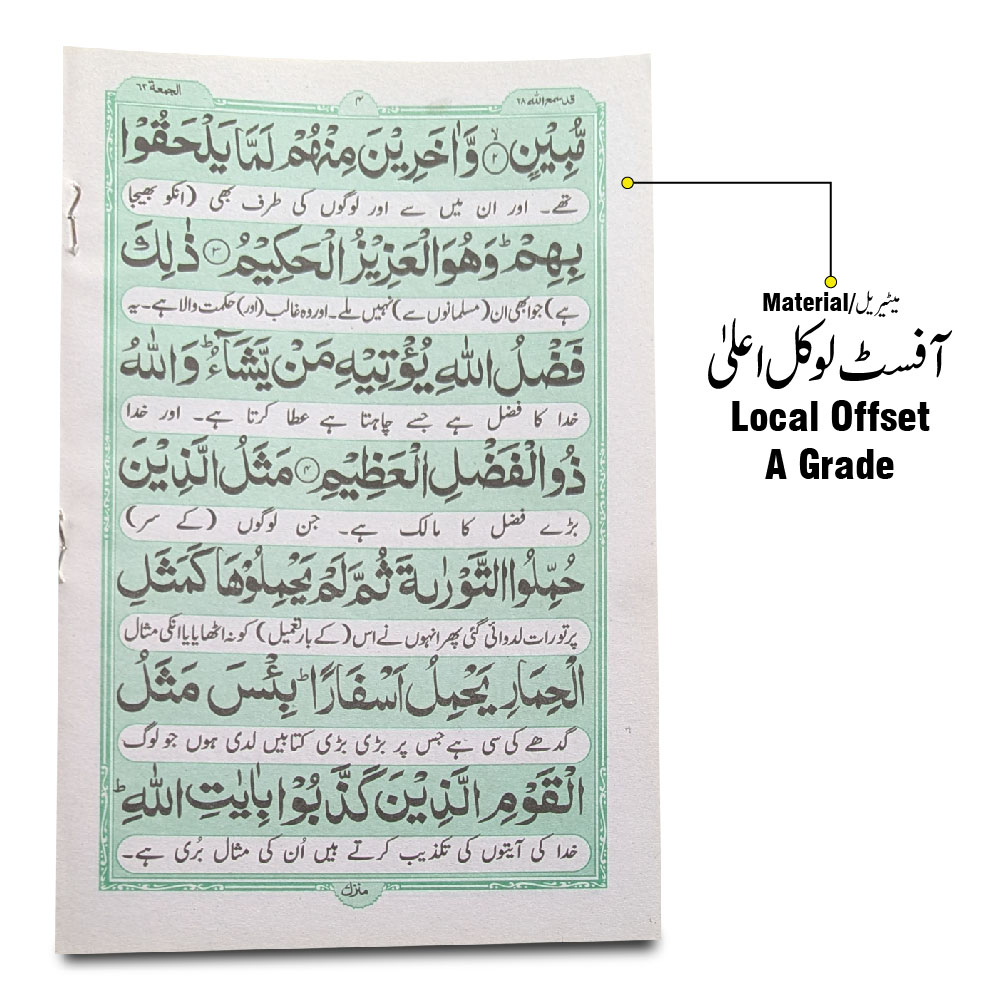 قد سمع الله ٢٨
٤
الجمعة ٦٢
مُّبِيْنٍ ۙ﴿۲﴾ وَّاٰخَرِيْنَ مِنْهُمْ لَمَّا يَلْحَقُوْا
تھے۔ اور ان میں سے اور لوگوں کی طرف بھی (انکو بھیجا
بِهِمْ ؕ وَهُوَ الْعَزِيْزُ الْحَكِيْمُ ﴿۳﴾ ذٰلِكَ
ہے) جو ابھی ان (مسلمانوں سے) نہیں ملے۔ اور وہ غالب (اور) حکمت والا ہے۔ یہ
فَضْلُ اللّٰهِ يُؤْتِيْهِ مَنْ يَّشَآءُ ؕ وَاللّٰهُ
خدا کا فضل ہے جسے چاہتا ہے عطا کرتا ہے۔ اور خدا
ذُو الْفَضْلِ الْعَظِيْمِ ﴿۴﴾ مَثَلُ الَّذِيْنَ
بڑے فضل کا مالک ہے۔ جن لوگوں (کے سر)
حُمِّلُوا التَّوْرٰىةَ ثُمَّ لَمْ يَحْمِلُوْهَا كَمَثَلِ
پر تورات لدوائی گئی پھر انہوں نے اس (کے بار تعمیل) کو نہ اٹھایا یا انکی مثال
الْحِمَارِ يَحْمِلُ اَسْفَارًا ؕ بِئْسَ مَثَلُ
گدھے کی سی ہے جس پر بڑی بڑی کتابیں لدی ہوں جو لوگ
الْقَوْمِ الَّذِيْنَ كَذَّبُوْا بِاٰيٰتِ اللّٰهِ ؕ
خدا کی آیتوں کی تکذیب کرتے ہیں اُن کی مثال بُری ہے۔
منزل
Material/میٹیریل
آفسٹ لوکل اعلیٰ
Local Offset
A Grade